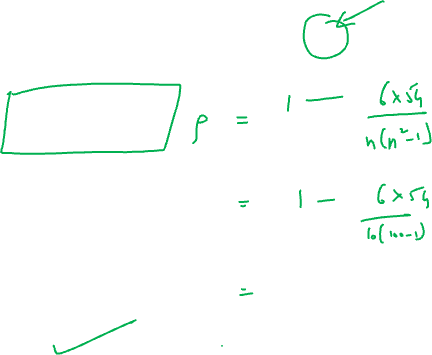 ρ = 1 - 6×54 / n(n²-1)
= 1 - 6×54 / 10(100-1)
=